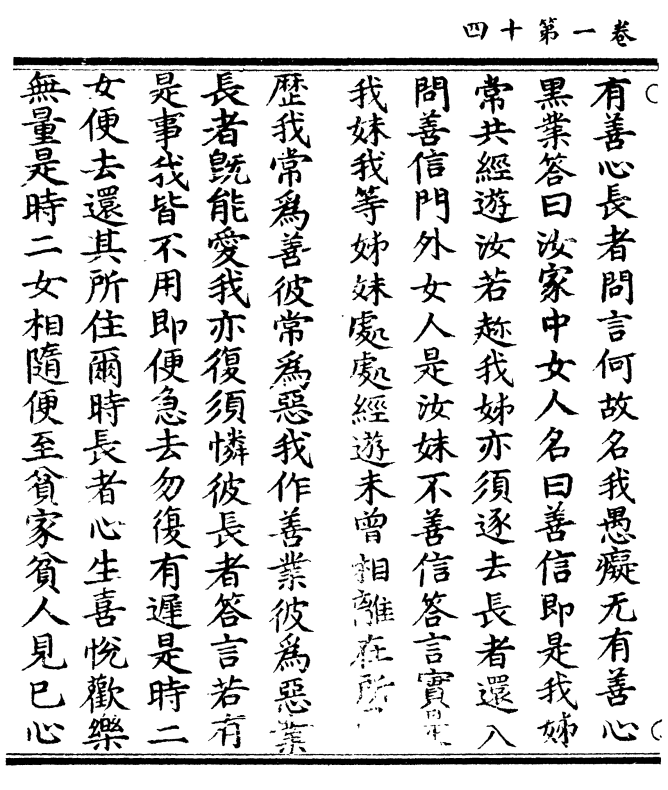 卷一第十四
有善心長者問言何故名我愚癡无有善心
黒業答曰汝家中女人名曰善信即是我姊
常共經遊汝若趂我姊亦須逐去長者還入
問善信門外女人是汝妹不善信答言實是
我妹我等姊妹處處經遊未曾相離在所
歷我常爲善彼常爲惡我作善業彼爲惡業
長者旣能愛我亦復須憐彼長者答言若有
是事我皆不用即便急去勿復有遲是時二
女便去還其所住爾時長者心生喜悅歡樂
無量是時二女相隨便至貧家貧人見已心